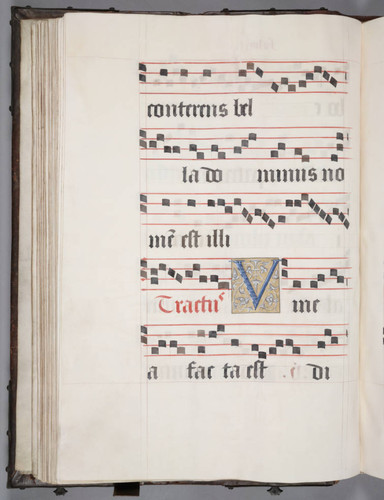 conterens bel
la do minus no
mē est illi
Tractus V ine
a fac ta est di